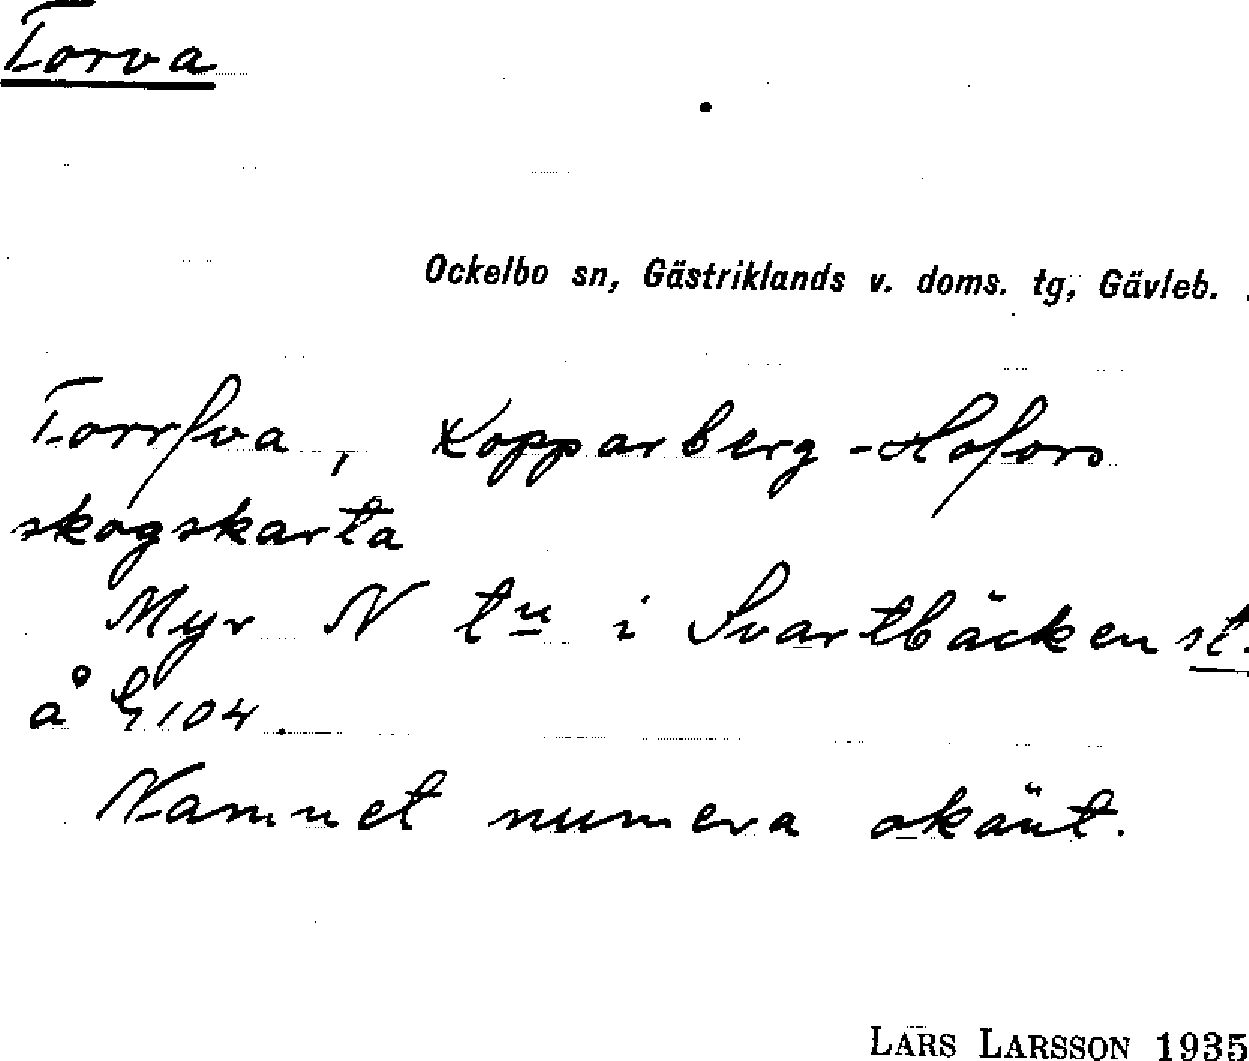 Torva
Ockelbo sn, Gästriklands v. doms. tg, Gävleb.
Torrfva, Kopparberg-Hofors
skogskarta
Myr N t<u>n</u> i Svartbäcken st.
å G 104.
Namnet numera okänt.
LARS LARSSON 1935